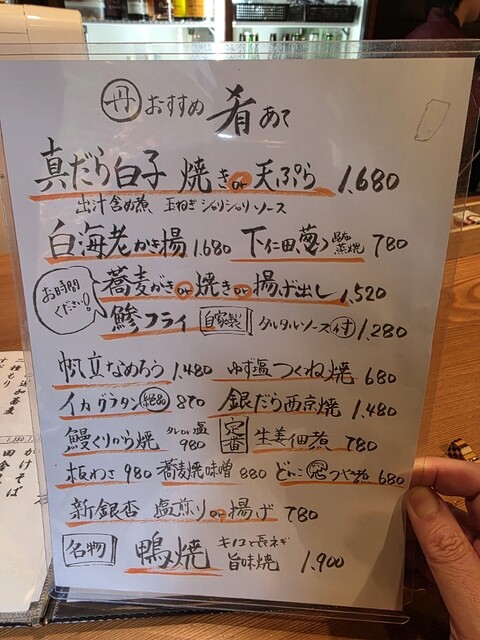 丹 おすすめ 肴 あて
真だら白子 焼き or 天ぷら 1,680
出汁含め煮 玉ねぎシャリシャリソース
白海老かき揚 1,680 下仁田葱 780
お時間ください!
蕎麦がき or 焼き or 揚げ出し 1,520
鯵フライ 自家製 タルタルソース付 1,280
帆立なめろう 1,480 ゆず塩つくね焼 680
イカグラタン 870 銀だら西京焼 1,480
鰻くりから焼 タレor塩 980 定番 生姜佃煮 780
板わさ 980 蕎麦焼味噌 880 どんこ つや煮 680
新銀杏 塩煎り or 揚げ 780
名物 鴨焼 キノコと長ネギ 旨味焼 1,900